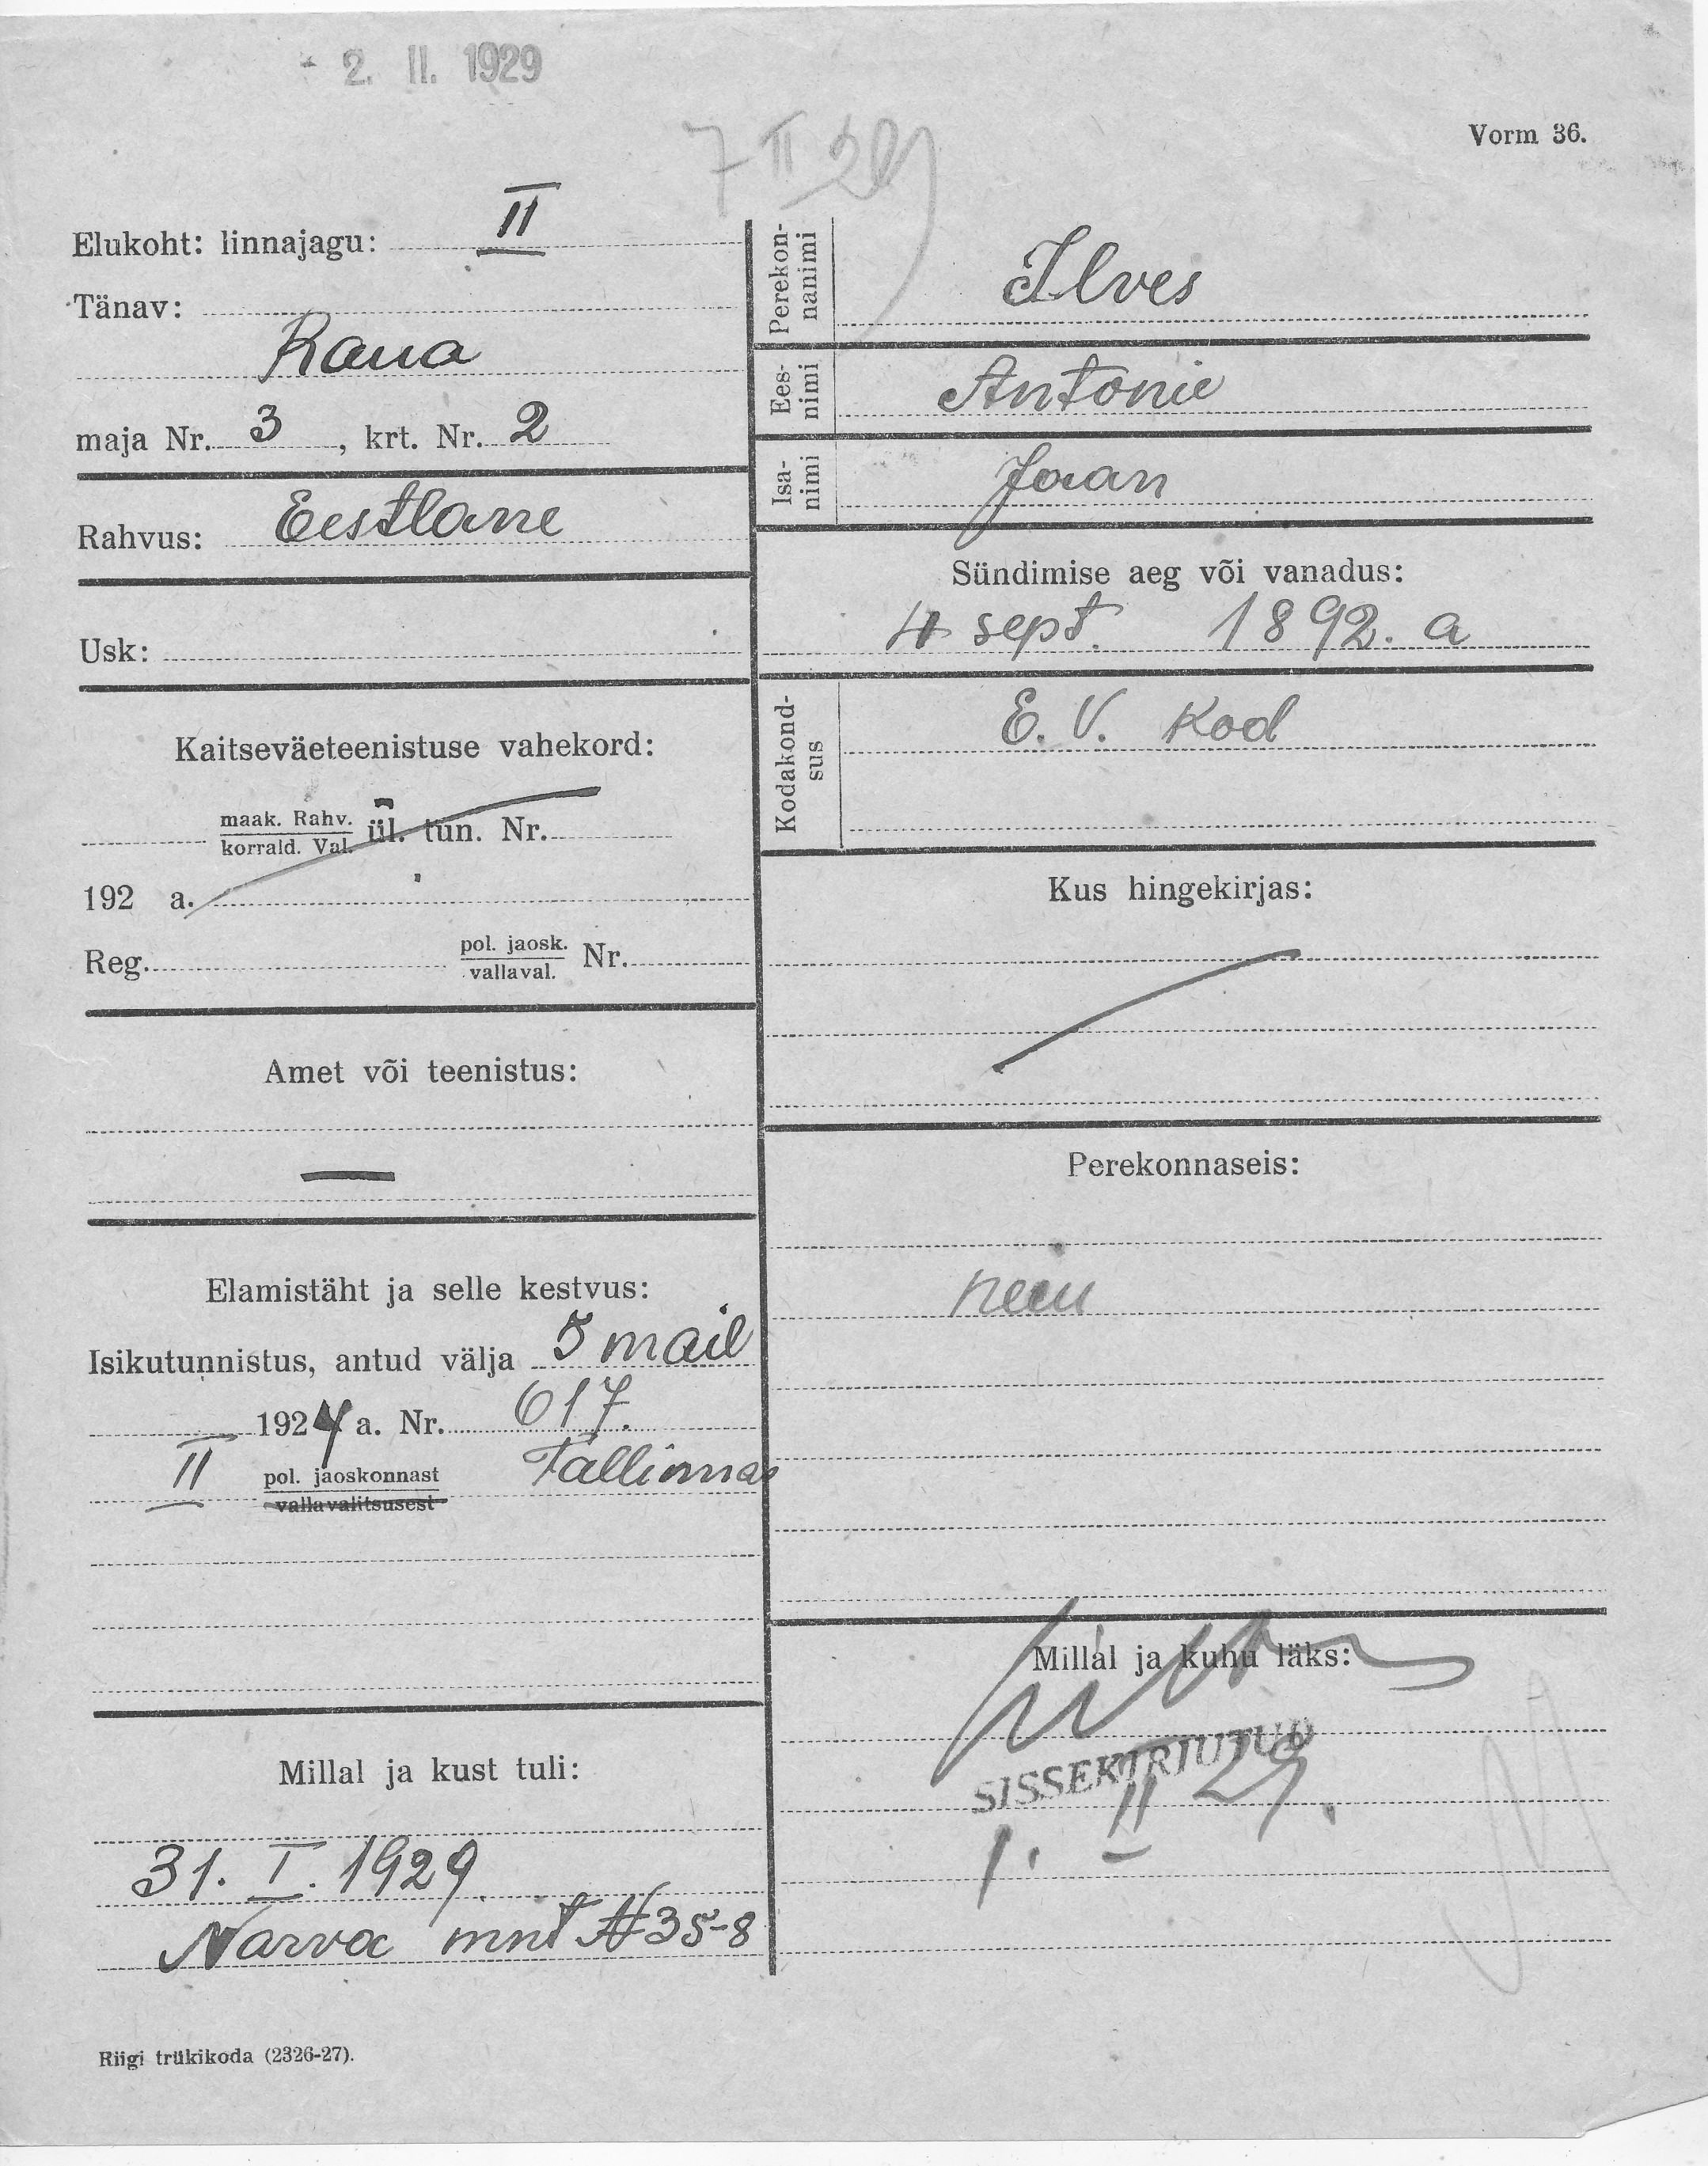 2. II. 1929
7 II 29
Vorm 36.
Elukoht: linnajagu: II
Tänav:
Raua
maja Nr. 3, krt. Nr. 2
Rahvus: Eestlane
Usk:
Kaitseväeteenistuse vahekord:
maak. Rahv.
korrald. Val. ül. tun. Nr.
192 a.
Reg. pol. jaosk.
vallaval. Nr.
Amet või teenistus:
—
Elamistäht ja selle kestvus:
Isikutunnistus, antud välja 5 mail
1924 a. Nr. 617.
II pol. jaoskonnast Tallinnas
vallavalitsusest
Millal ja kust tuli:
31. I. 1929
Narva mnt № 35-8
Perekon-
nanimi
Ilves
Ees-
nimi
Antonie
Isa-
nimi
Jaan
Sündimise aeg või vanadus:
4 sept. 1892. a
Kodakond-
sus
E. V. Kod
Kus hingekirjas:
Perekonnaseis:
neiu
Millal ja kuhu läks:
SISSEKIRJUTUD
1. II 29.
Riigi trükikoda (2326-27).